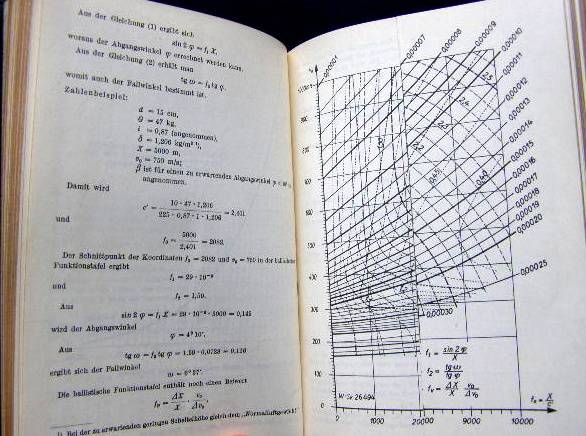 Aus der Gleichung (1) ergibt sich
sin 2 φ = f₁ X,
woraus der Abgangswinkel φ errechnet werden kann.
Aus der Gleichung (2) erhält man
tg ω = f₂ tg φ,
womit auch der Fallwinkel bestimmt ist.
Zahlenbeispiel:
d = 15 cm,
G = 47 kg,
i = 0,87 (angenommen),
δ = 1,206 kg/m³ ¹),
X = 5000 m,
v₀ = 750 m/s;
β ist für einen zu erwartenden Abgangswinkel φ <
angenommen.
Damit wird
c' = 10 · 47 · 1,206 / 225 · 0,87 · 1 · 1,206 = 2,401
und
f₀ = 5000 / 2,401 = 2082.
Der Schnittpunkt der Koordinaten f₀ = 2082 und v₀ = 750 in der
Funktionstafel ergibt
f₁ = 29 · 10⁻⁶
und
f₂ = 1,59.
Aus
sin 2 φ = f₁ X = 29 · 10⁻⁶ · 5000 = 0,145
wird der Abgangswinkel
φ = 4° 10'.
Aus
tg ω = f₂ tg φ = 1,59 · 0,0728 = 0,116
ergibt sich der Fallwinkel
ω = 6° 37'.
Die ballistische Funktionstafel enthält noch einen Beiwert
fᵥ = ΔX / X · v₀ / Δv₀,
¹) Bei der zu erwartenden geringen Scheitelhöhe gleich dem „Normalluftgewicht“
0,00001
0,00007
0,00008
0,00009
0,00010
0,00011
0,00012
0,00013
0,00014
0,00015
0,00016
0,00017
0,00018
0,00019
0,00020
0,00025
0,00030
v₀
900
800
700
600
500
400
300
200
100
0
2,5
2,4
2,2
0,45
0,40
f₁ = sin 2φ / X
f₂ = tg ω / tg φ
fᵥ = ΔX / X · v₀ / Δv₀
W-Sr. 26494
2 1000 2000 4000 10000
f₀ = X / c'